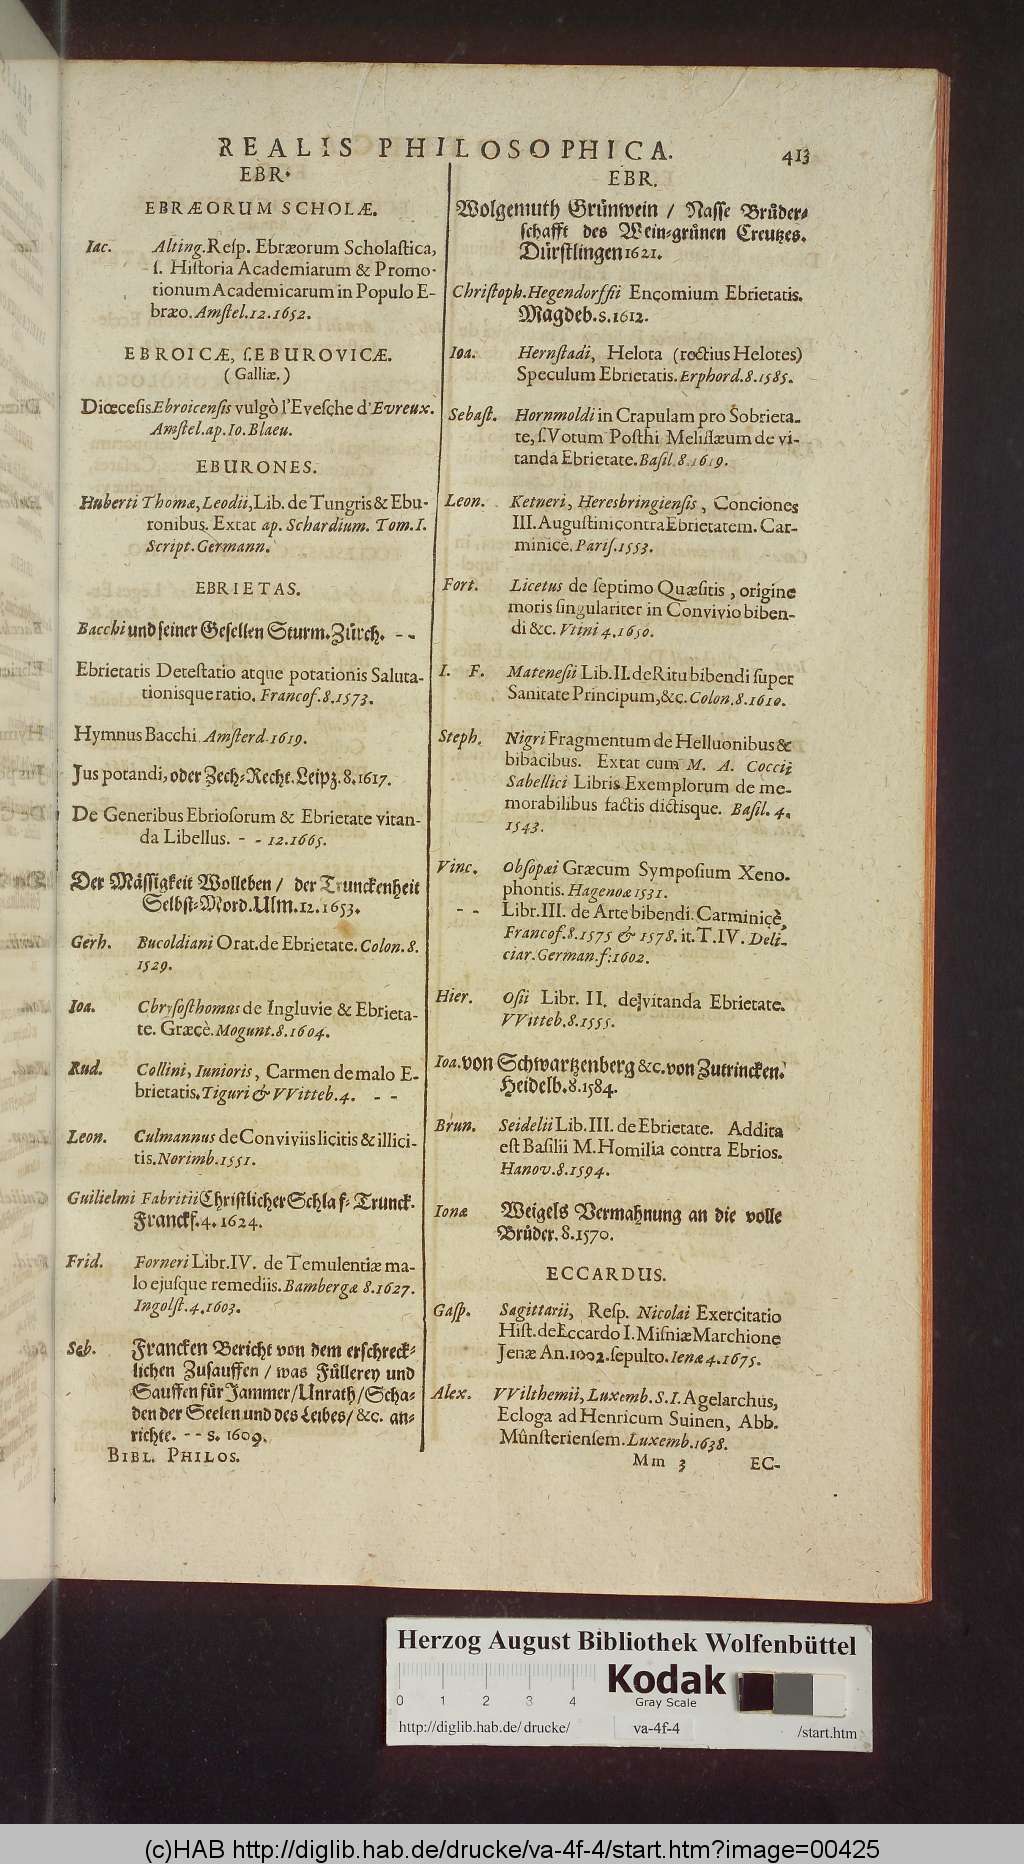 REALIS PHILOSOPHICA. 413
EBR.
EBRÆORUM SCHOLÆ.
Iac. Alting. Reſp. Ebræorum Scholaſtica,
ſ. Hiſtoria Academiarum & Promo-
tionum Academicarum in Populo E-
bræo. Amſtel. 12. 1652.
EBROICÆ, ſ. EBUROVICÆ.
(Galliæ.)
Diœceſis Ebroicenſis vulgò l'Eveſche d'Evreux.
Amſtel. ap. Io. Blaeu.
EBURONES.
Huberti Thomæ, Leodii, Lib. de Tungris & Ebu-
ronibus. Extat ap. Schardium. Tom. I.
Script. Germann.
EBRIETAS.
Bacchi und ſeiner Geſellen Sturm. Zürch. - -
Ebrietatis Deteſtatio atque potationis Saluta-
tionisque ratio. Francof. 8. 1573.
Hymnus Bacchi Amſterd. 1619.
Jus potandi, oder Zech-Recht. Leipz. 8. 1617.
De Generibus Ebrioſorum & Ebrietate vitan-
da Libellus. - - 12. 1665.
Der Mäſſigkeit Wolleben / der Trunckenheit
Selbſt-Mord. Ulm. 12. 1653.
Gerh. Bucoldiani Orat. de Ebrietate. Colon. 8.
1529.
Ioa. Chryſoſthomus de Ingluvie & Ebrieta-
te. Græcè. Mogunt. 8. 1604.
Rud. Collini, Iunioris, Carmen de malo E-
brietatis. Tiguri & VVitteb. 4. - -
Leon. Culmannus de Conviviis licitis & illici-
tis. Norimb. 1551.
Guilielmi Fabritii Chriſtlicher Schlaf-Trunck.
Franckf. 4. 1624.
Frid. Forneri Libr. IV. de Temulentiæ ma-
lo ejuſque remediis. Bambergæ 8. 1627.
Ingolſt. 4. 1603.
Seb. Francken Bericht von dem erſchreck-
lichen Zuſauffen / was Füllerey und
Sauffen für Jammer / Unrath / Scha-
den der Seelen und des Leibes / &c. an-
richte. - - s. 1609.
BIBL. PHILOS.
EBR.
Wolgemuth Grünwein / Naſſe Brüder-
ſchafft des Wein-grünen Creutzes.
Dürſtlingen 1621.
Chriſtoph. Hegendorffii Encomium Ebrietatis.
Magdeb. s. 1612.
Ioa. Hernſtadi, Helota (rectius Helotes)
Speculum Ebrietatis. Erphord. 8. 1585.
Sebaſt. Hornmoldi in Crapulam pro Sobrieta-
te, ſ. Votum Poſthi Meliſſæum de vi-
tanda Ebrietate. Baſil. 8. 1619.
Leon. Ketneri, Heresbringienſis, Conciones
III. Auguſtini contra Ebrietatem. Car-
minicè. Pariſ. 1553.
Fort. Licetus de ſeptimo Quæſitis, origine
moris ſingulariter in Convivio biben-
di &c. Vtini 4. 1650.
I. F. Mateneſii Lib. II. de Ritu bibendi ſuper
Sanitate Principum, &c. Colon. 8. 1610.
Steph. Nigri Fragmentum de Helluonibus &
bibacibus. Extat cum M. A. Coccii
Sabellici Libris Exemplorum de me-
morabilibus factis dictisque. Baſil. 4.
1543.
Vinc. Obſopæi Græcum Sympoſium Xeno-
phontis. Hagenoæ 1531.
- - Libr. III. de Arte bibendi. Carminicè,
Francof. 8. 1575 & 1578. it. T. IV. Deli-
ciar. German. f: 1602.
Hier. Oſii Libr. II. de vitanda Ebrietate.
VVitteb. 8. 1555.
Ioa. von Schwartzenberg &c. von Zutrincken.
Heidelb. 8. 1584.
Brun. Seidelii Lib. III. de Ebrietate. Addita
eſt Baſilii M. Homilia contra Ebrios.
Hanov. 8. 1594.
Ionæ Weigels Vermahnung an die volle
Brüder. 8. 1570.
ECCARDUS.
Gaſp. Sagittarii, Reſp. Nicolai Exercitatio
Hiſt. de Eccardo I. Miſniæ Marchione
Jenæ An. 1002. ſepulto. Ienæ 4. 1675.
Alex. VVilthemii, Luxemb. S. I. Agelarchus,
Ecloga ad Henricum Suinen, Abb.
Münſterienſem. Luxemb. 1638.
Mm 3 EC-
Herzog August Bibliothek Wolfenbüttel
0 1 2 3 4
Kodak
Gray Scale
http://diglib.hab.de/drucke/ va-4f-4 /start.htm
(c)HAB http://diglib.hab.de/drucke/va-4f-4/start.htm?image=00425